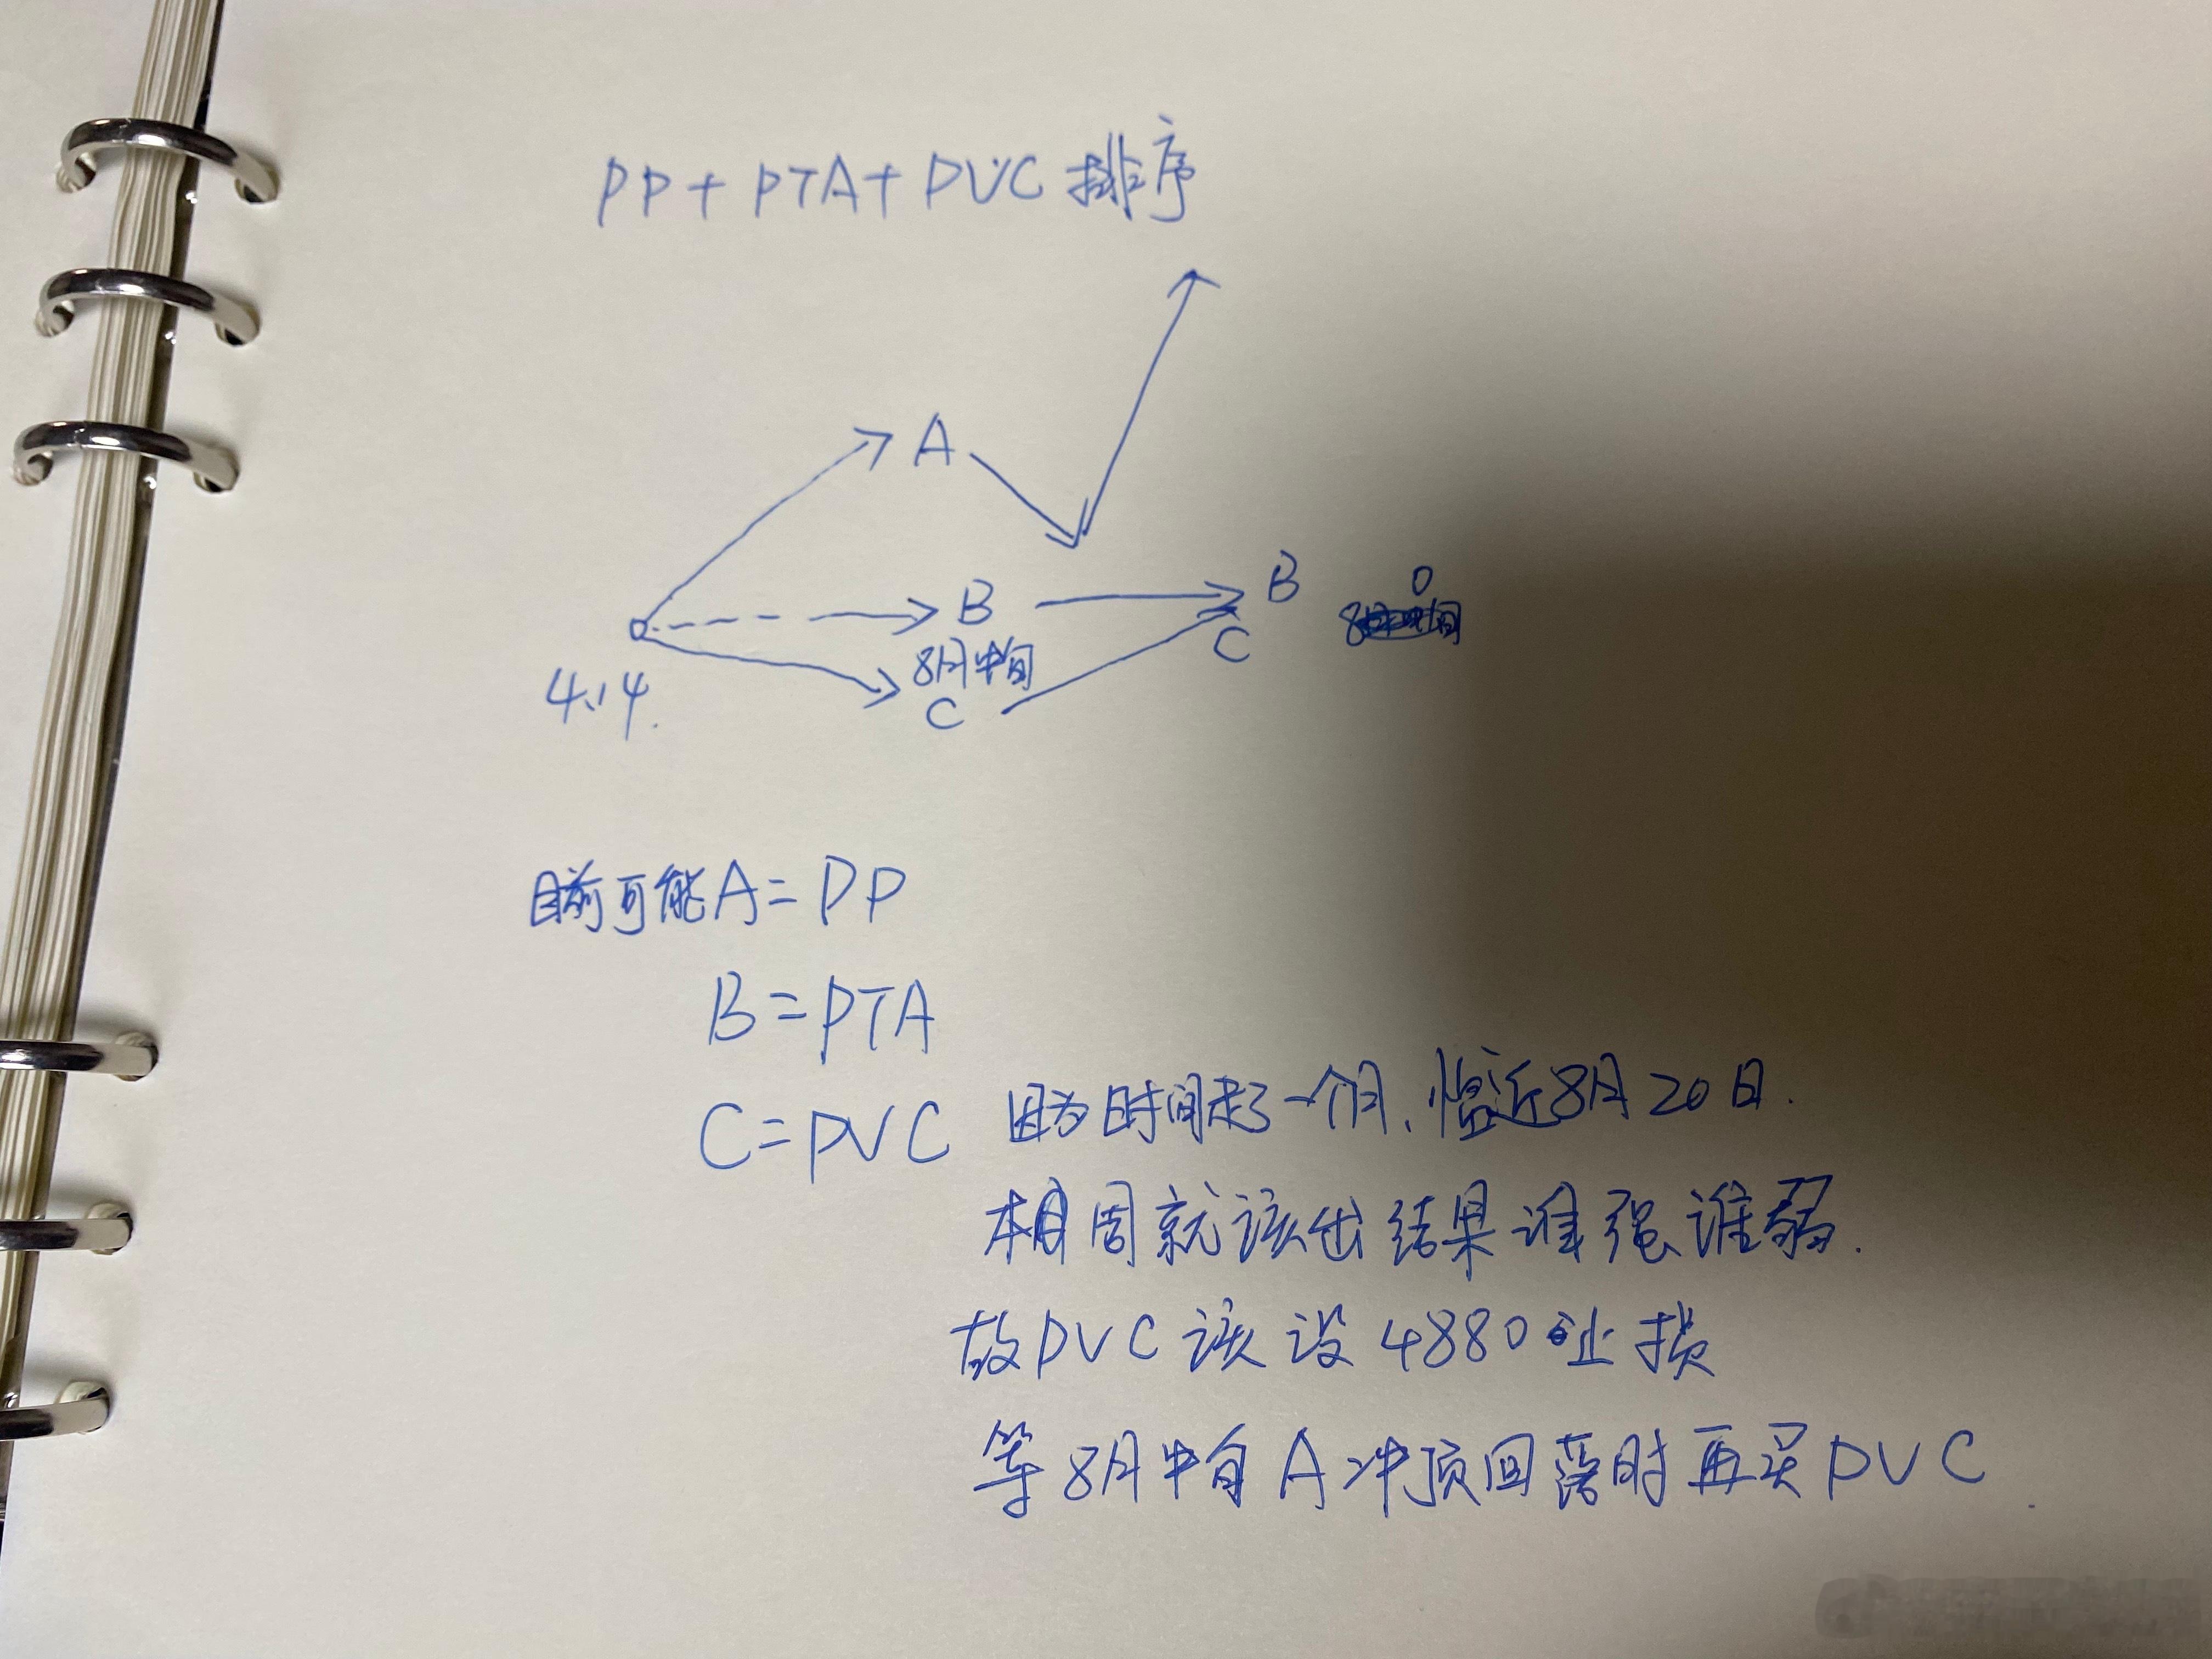 PP+PTA+PVC排序
A
B
B
C
8月中旬
C
4.14.
目前可能A=PP
B=PTA
C=PVC
因为时间走了一个月.临近8月20日.
本周就该出结果谁强谁弱.
故PVC该设4880止损
等8月中旬A冲顶回落时再买PVC